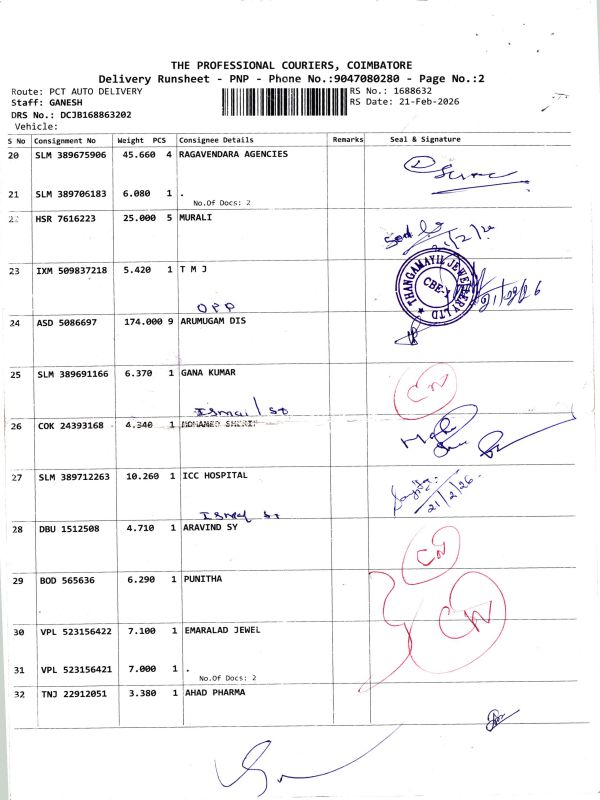 THE PROFESSIONAL COURIERS, COIMBATORE
Delivery Runsheet - PNP - Phone No.:9047080280 - Page No.:2
Route: PCT AUTO DELIVERY
RS No.: 1688632
Staff: GANESH
RS Date: 21-Feb-2026
DRS No.: DCJB168863202
Vehicle:
S No Consignment No Weight PCS Consignee Details Remarks Seal & Signature
20 SLM 389675906 45.660 4 RAGAVENDARA AGENCIES
21 SLM 389706183 6.080 1 .
No.Of Docs: 2
22 HSR 7616223 25.000 5 MURALI
21/2/26
23 IXM 509837218 5.420 1 T M J
THANGAMAYIL JEWELLERY LTD
CBE-1
OPP
24 ASD 5086697 174.000 9 ARUMUGAM DIS
25 SLM 389691166 6.370 1 GANA KUMAR
CN
Ismail St
26 COK 24393168 4.340 1 MOHAMED SHERIF
27 SLM 389712263 10.260 1 ICC HOSPITAL
21/2/26.
28 DBU 1512508 4.710 1 ARAVIND SY
CN
29 BOD 565636 6.290 1 PUNITHA
CN
30 VPL 523156422 7.100 1 EMARALAD JEWEL
31 VPL 523156421 7.000 1 .
No.Of Docs: 2
32 TNJ 22912051 3.380 1 AHAD PHARMA